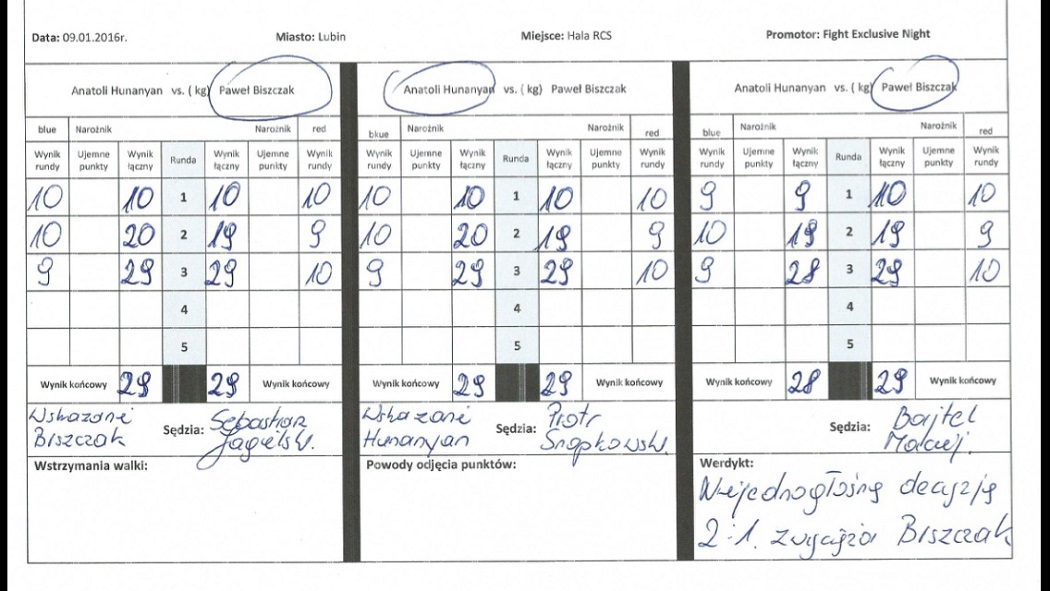 Data: 09.01.2016r. Miasto: Lubin Miejsce: Hala RCS Promotor: Fight Exclusive Night
Anatoli Hunanyan vs. ( kg) Paweł Biszczak
blue Narożnik Narożnik red
Wynik rundy Ujemne punkty Wynik łączny Runda Wynik łączny Ujemne punkty Wynik rundy
10 10 1 10 10
10 20 2 19 9
9 29 3 29 10
4
5
Wynik końcowy 29 29 Wynik końcowy
Wskazanie
Biszczak
Sędzia: Sebastian
Jagielski.
Wstrzymania walki:
Anatoli Hunanyan vs. ( kg) Paweł Biszczak
bkue Narożnik Narożnik red
Wynik rundy Ujemne punkty Wynik łączny Runda Wynik łączny Ujemne punkty Wynik rundy
10 10 1 10 10
10 20 2 19 9
9 29 3 29 10
4
5
Wynik końcowy 29 29 Wynik końcowy
Wskazanie
Hunanyan
Sędzia: Piotr
Snopkowski.
Powody odjęcia punktów:
Anatoli Hunanyan vs. ( kg) Paweł Biszczak
blue Narożnik Narożnik red
Wynik rundy Ujemne punkty Wynik łączny Runda Wynik łączny Ujemne punkty Wynik rundy
9 9 1 10 10
10 19 2 19 9
9 28 3 29 10
4
5
Wynik końcowy 28 29 Wynik końcowy
Sędzia: Bajtel
Maciej.
Werdykt:
Niejednogłośną decyzją
2:1. zwycięża Biszczak